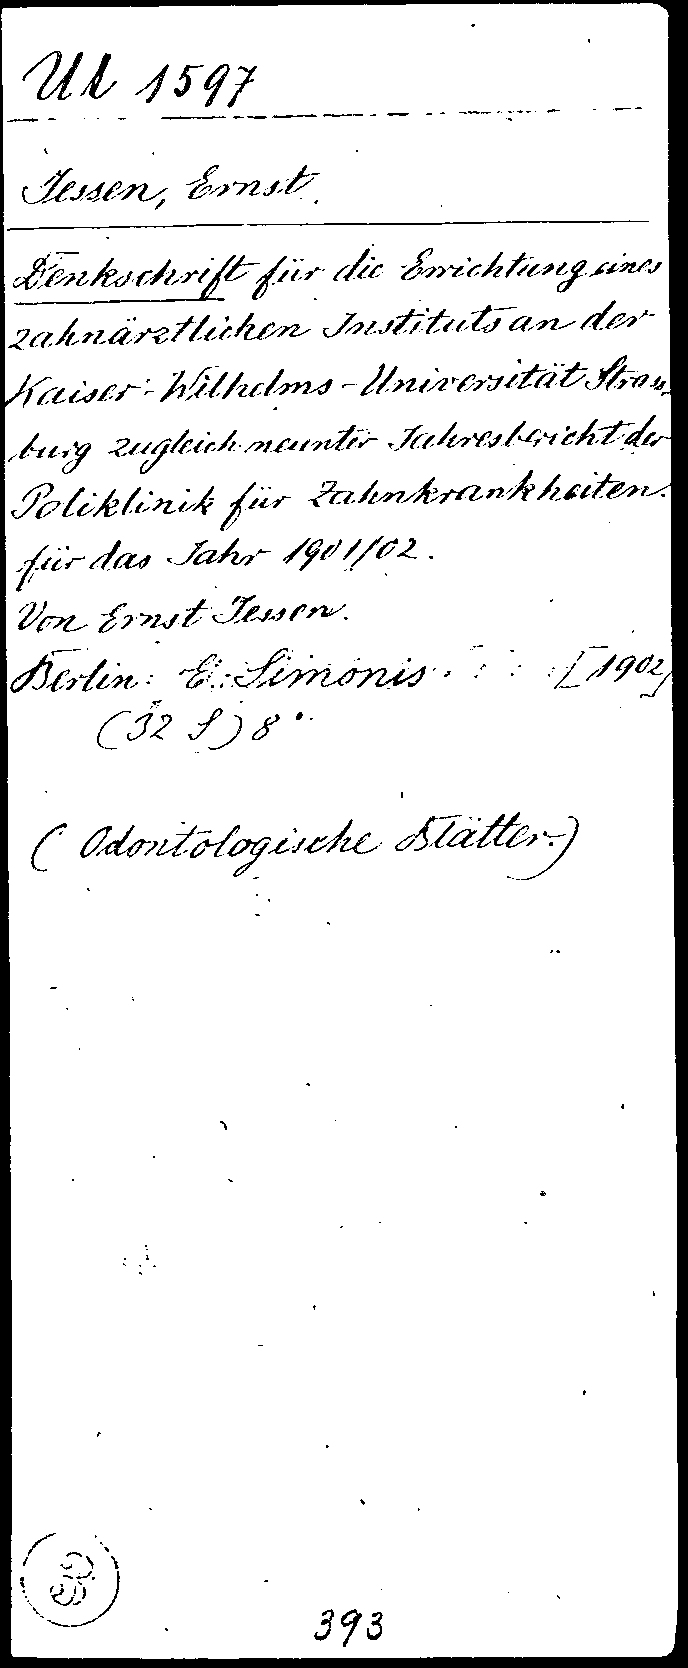 Ul 1597
Jessen, Ernst.
Denkschrift für die Errichtung eines
zahnärztlichen Instituts an der
Kaiser-Wilhelms-Universität Strass-
burg zugleich neunter Jahresbericht der
Poliklinik für Zahnkrankheiten.
für das Jahr 1901/02.
Von Ernst Jessen.
Berlin: E. Simonis [1902]
(32 S) 8°
(Odontologische Blätter.)
393